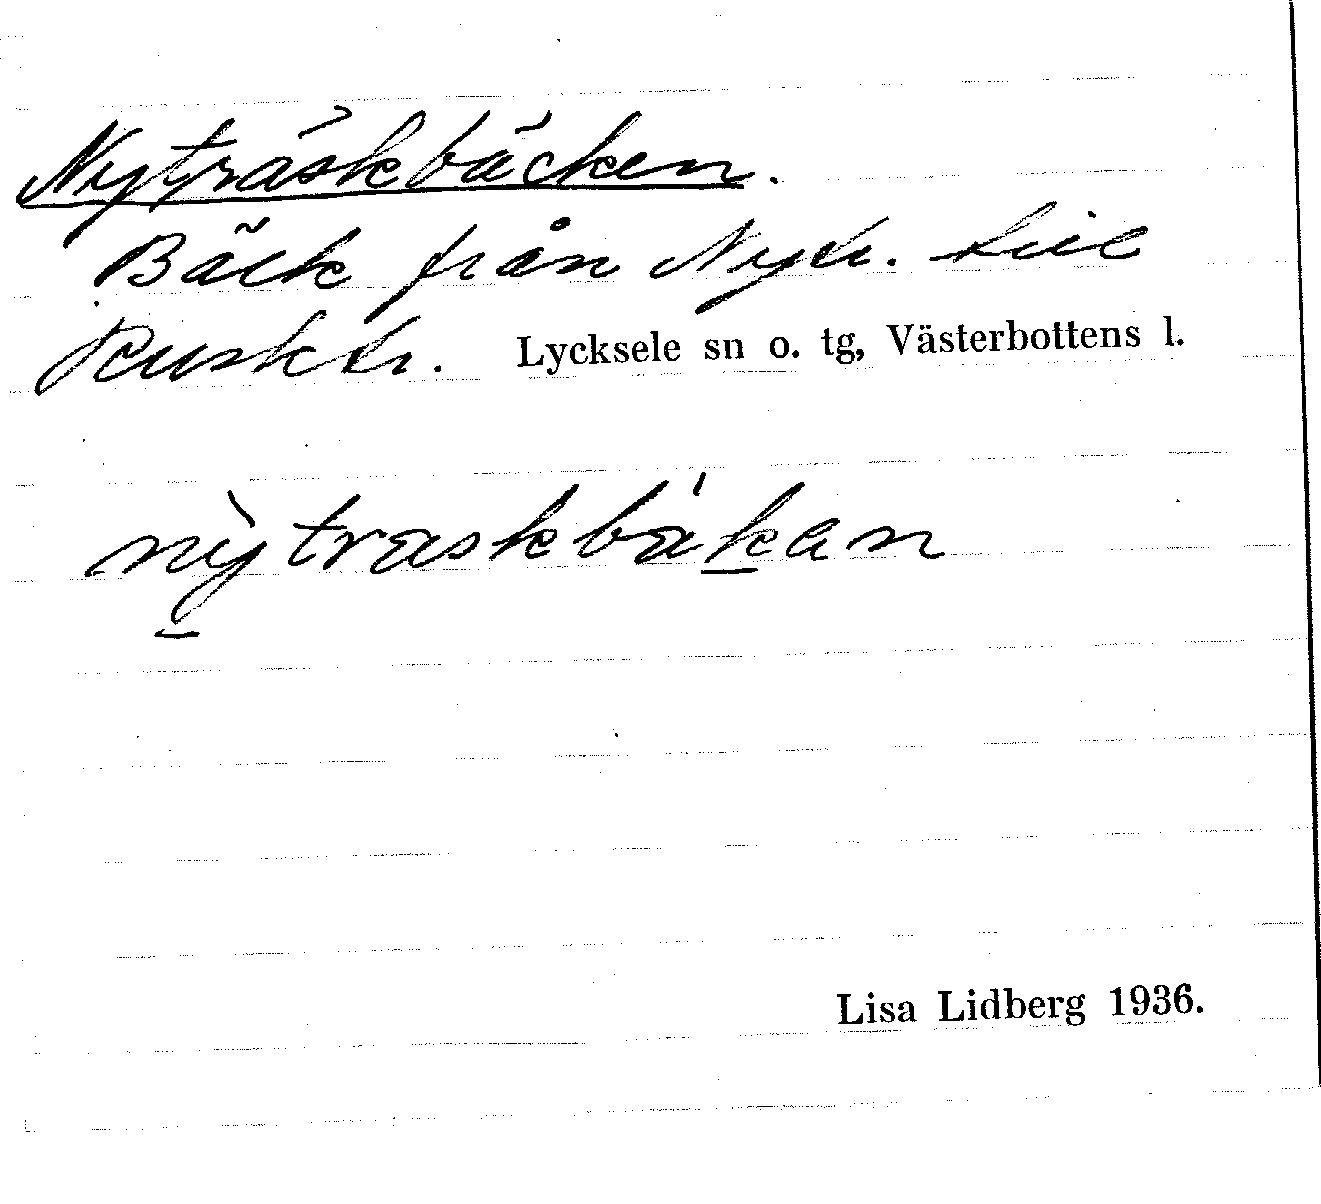 Nyträskbäcken.
Bäck från Nytr. till
Rusktr. Lycksele sn o. tg, Västerbottens l.
nỳtraskbákan
Lisa Lidberg 1936.